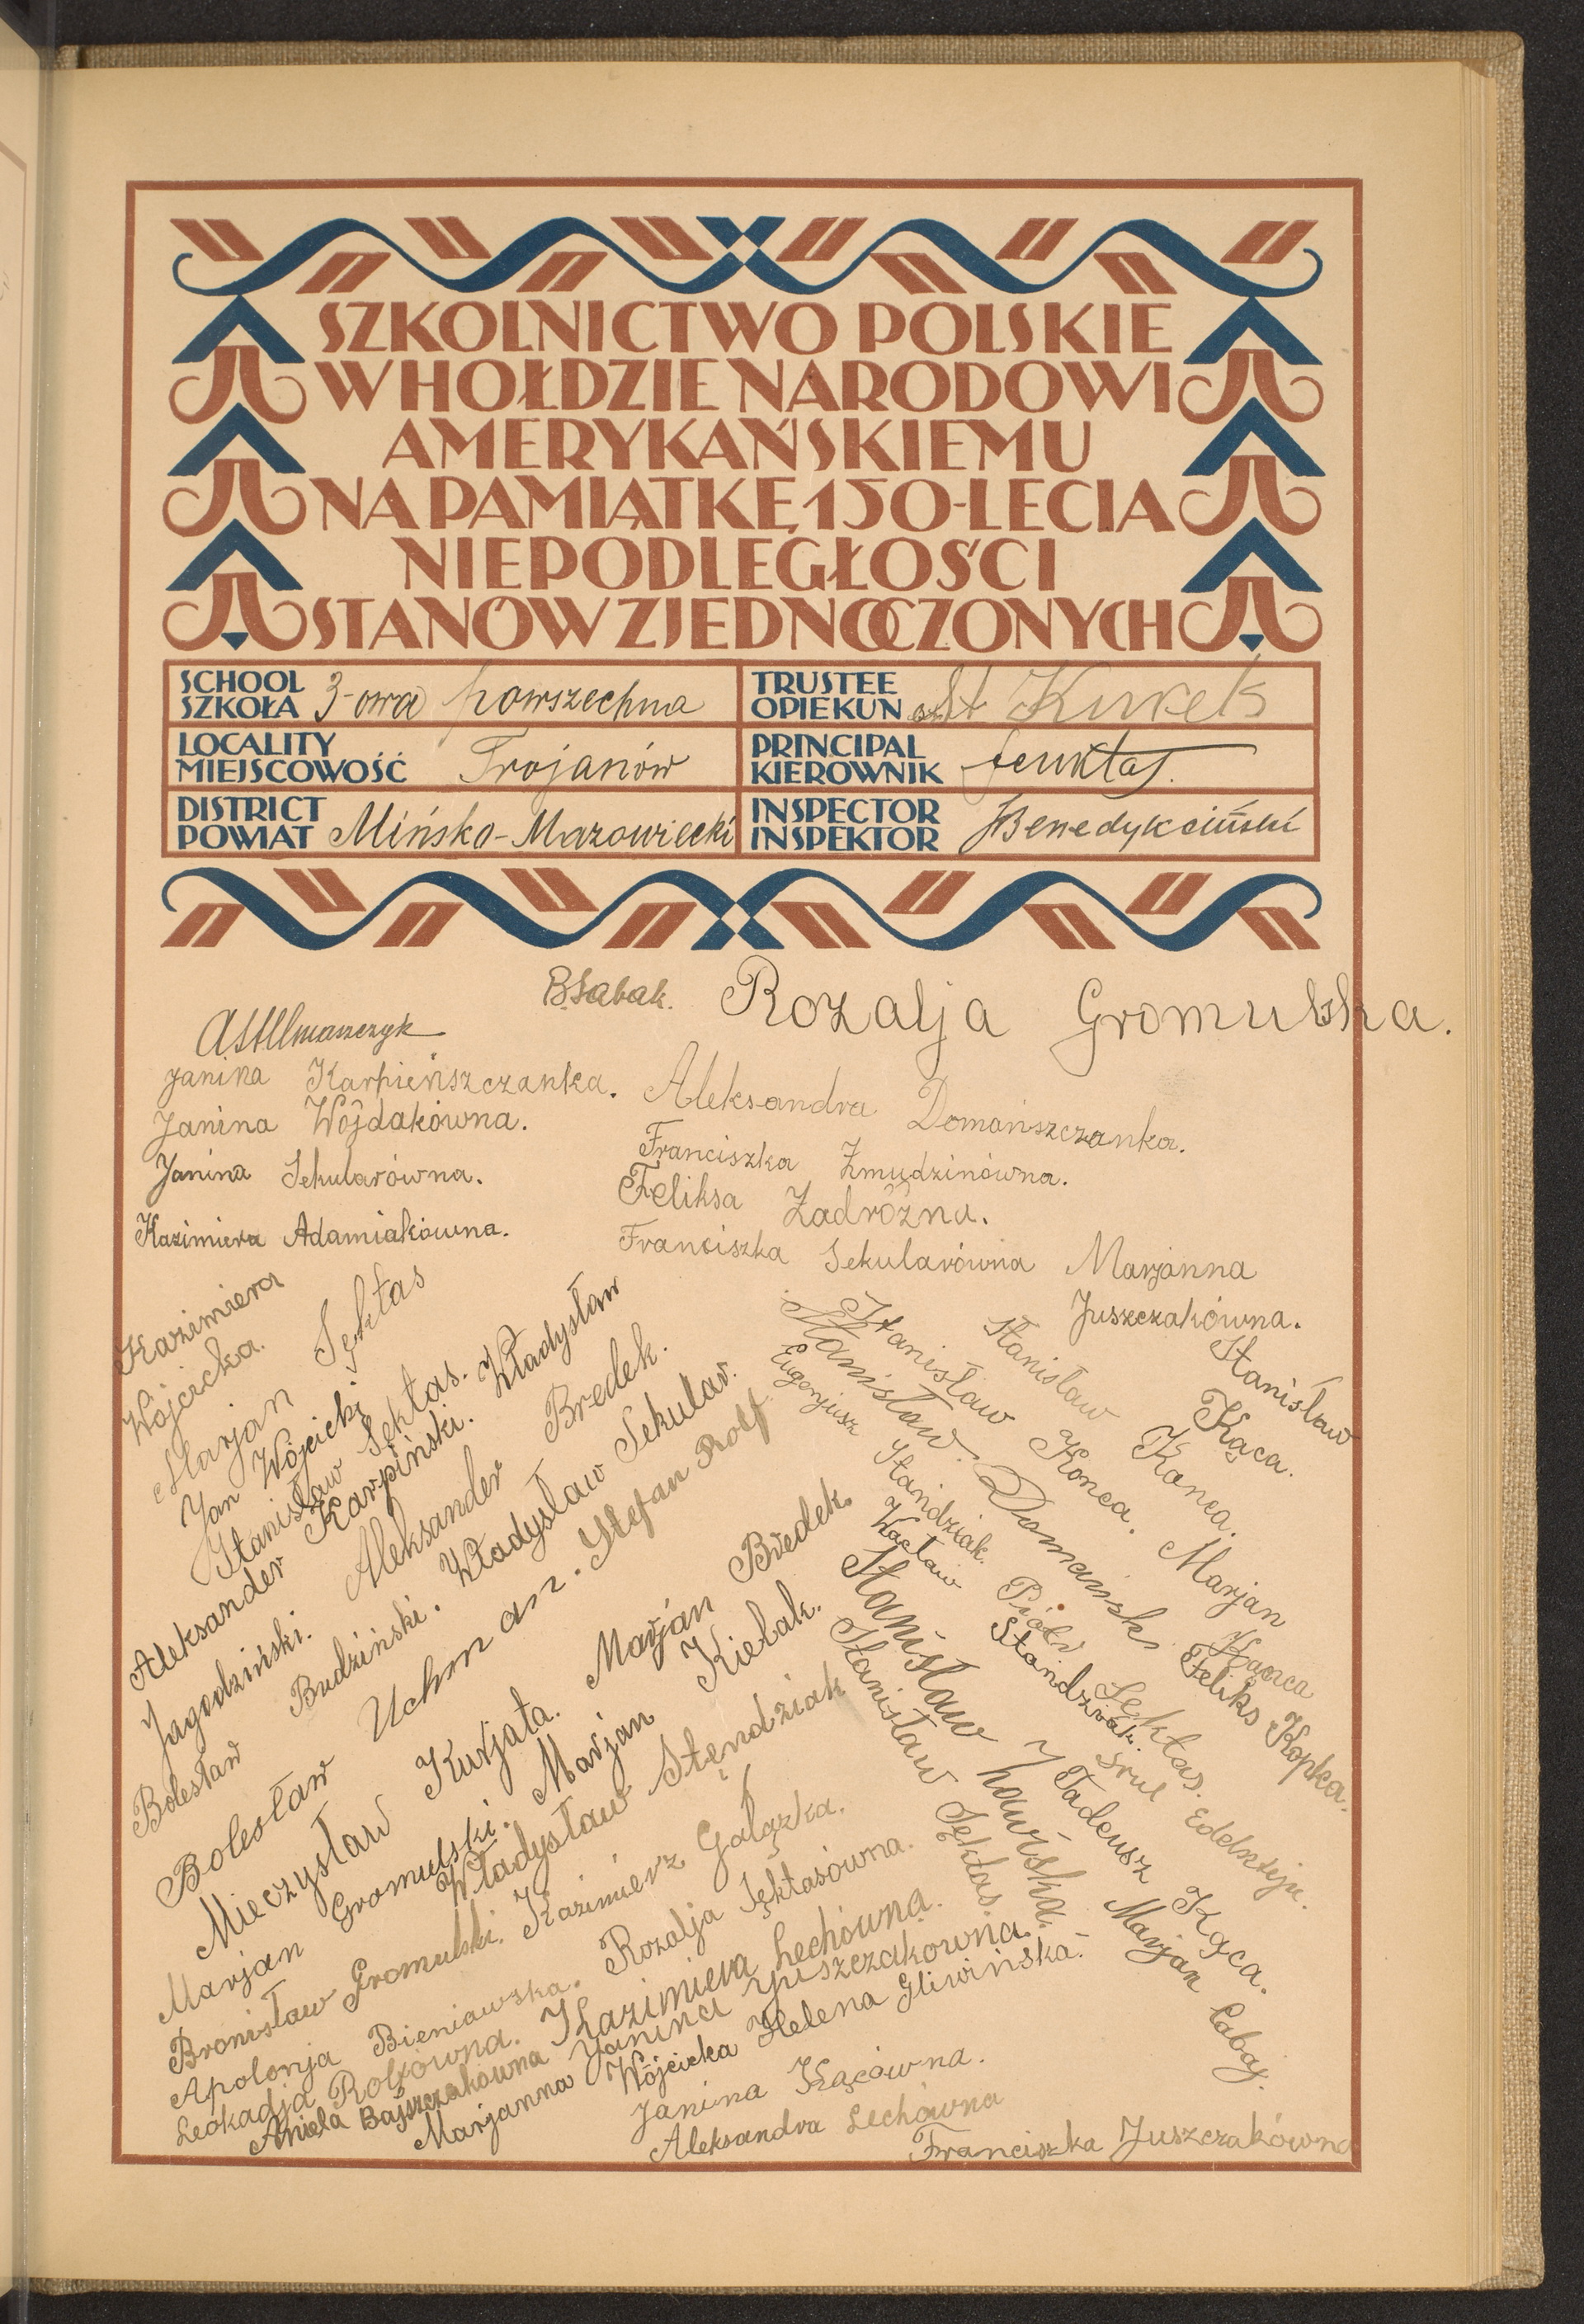 SZKOLNICTWO POLSKIE
W HOŁDZIE NARODOWI
AMERYKAŃSKIEMU
NA PAMIĄTKĘ 150-LECIA
NIEPODLEGŁOŚCI
STANÓW ZJEDNOCZONYCH
SCHOOL
SZKOŁA 3-owa powszechna
TRUSTEE
OPIEKUN
LOCALITY
MIEJSCOWOŚĆ Trojanów
PRINCIPAL
KIEROWNIK
DISTRICT
POWIAT Mińsko-Mazowiecki
INSPECTOR
INSPEKTOR Benedykciński
BSabak. Rozalja Gromulska.
Janina Karpieńszczanka. Aleksandra Domańszczanka.
Janina Wójdakówna.
Franciszka Żmudzinówna.
Janina Sekularówna.
Feliksa Zadróżna.
Kazimiera Adamiakówna.
Franciszka Sekularówna Marjanna
Juszczakówna.
Kazimiera
Wójcicka.
Marjan Sęktas
Jan Wójcicki
Stanisław Sęktas. Władysław
Aleksander Karpiński.
Jagodziński. Aleksander Bredek.
Bolesław Budziński. Władysław Sekular.
Bolesław Uchman. Stefan Rolf
Mieczysław Kurjata. Marjan Bredek.
Marjan Gromulski. Marjan Kiełak.
Władysław Stęndziak
Bronisław Gromulski. Kazimierz Gałązka.
Apolonja Bieniawska. Rozalja Sęktasówna.
Leokadja Rolfówna. Kazimiera Lechówna.
Aniela Bajszczakówna Janina Juszczakówna.
Marjanna Wójcicka Helena Gliwińska.
Janina Kącówna.
Aleksandra Lechówna
Franciszka Juszczakówna
Stanisław
Kąca.
Stanisław Kanca.
Stanisław Konca. Marjan
Kanca
Stanisław Domański Feliks Kopka.
Eugenjusz Standziak.
Piotr Sęktas. Srul Edelsztejn.
Wacław Standziak.
Stanisław
Tadeusz Kąca.
Stanisław Sęktas.
Marjan Cabaj.